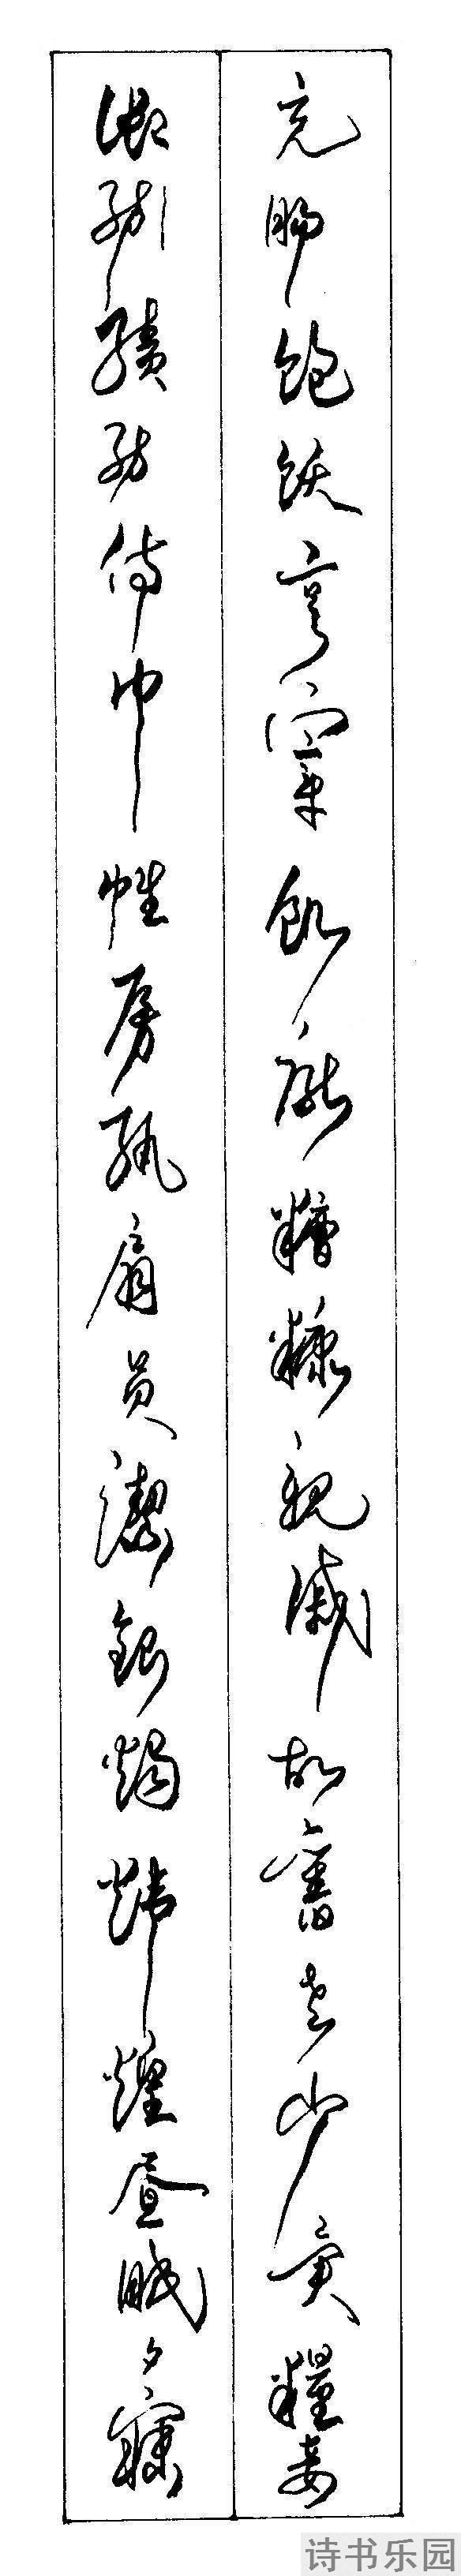 充腸飽飫享宰飢厭糟糠親戚故舊老少異糧妾
御紡績紡侍巾帷房紈扇員潔銀燭煒煌晝眠夕寐
诗书乐园